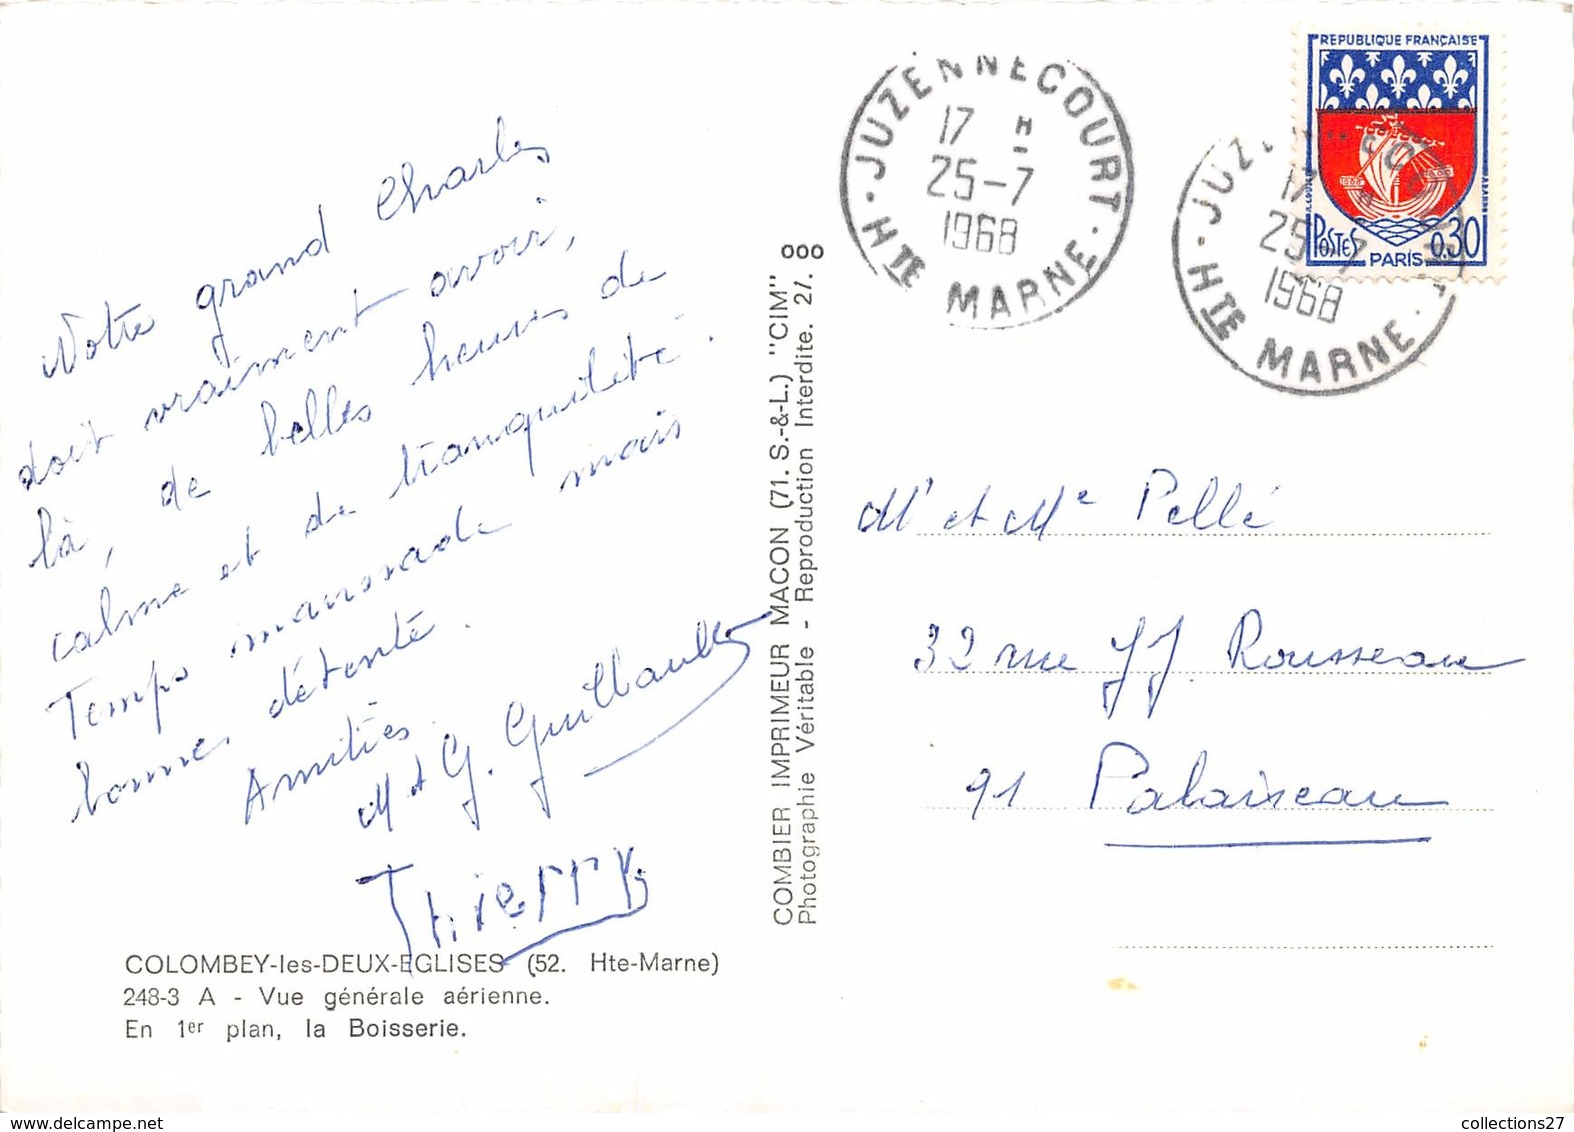 Notre grand Charles
doit vraiment avoir,
là, de belles heures de
calme et de tranquilité.
Temps maussade mais
bonnes détente.
Amitiés.
M et G. Guillbault
Thierry
COLOMBEY-les-DEUX-EGLISES (52. Hte-Marne)
248-3 A - Vue générale aérienne.
En 1er plan, la Boisserie.
COMBIER IMPRIMEUR MACON (71. S.-&-L.) "CIM"
Photographie Véritable - Reproduction Interdite. 2/.
JUZENNECOURT
17 H
25-7
1968
HTE MARNE
JUZENNECOURT
17 H
25-7
1968
HTE MARNE
REPUBLIQUE FRANÇAISE
POSTES
0,30
PARIS
Mr et Me Pellé
32 rue JJ. Rousseau
91 Palaiseau
collections27